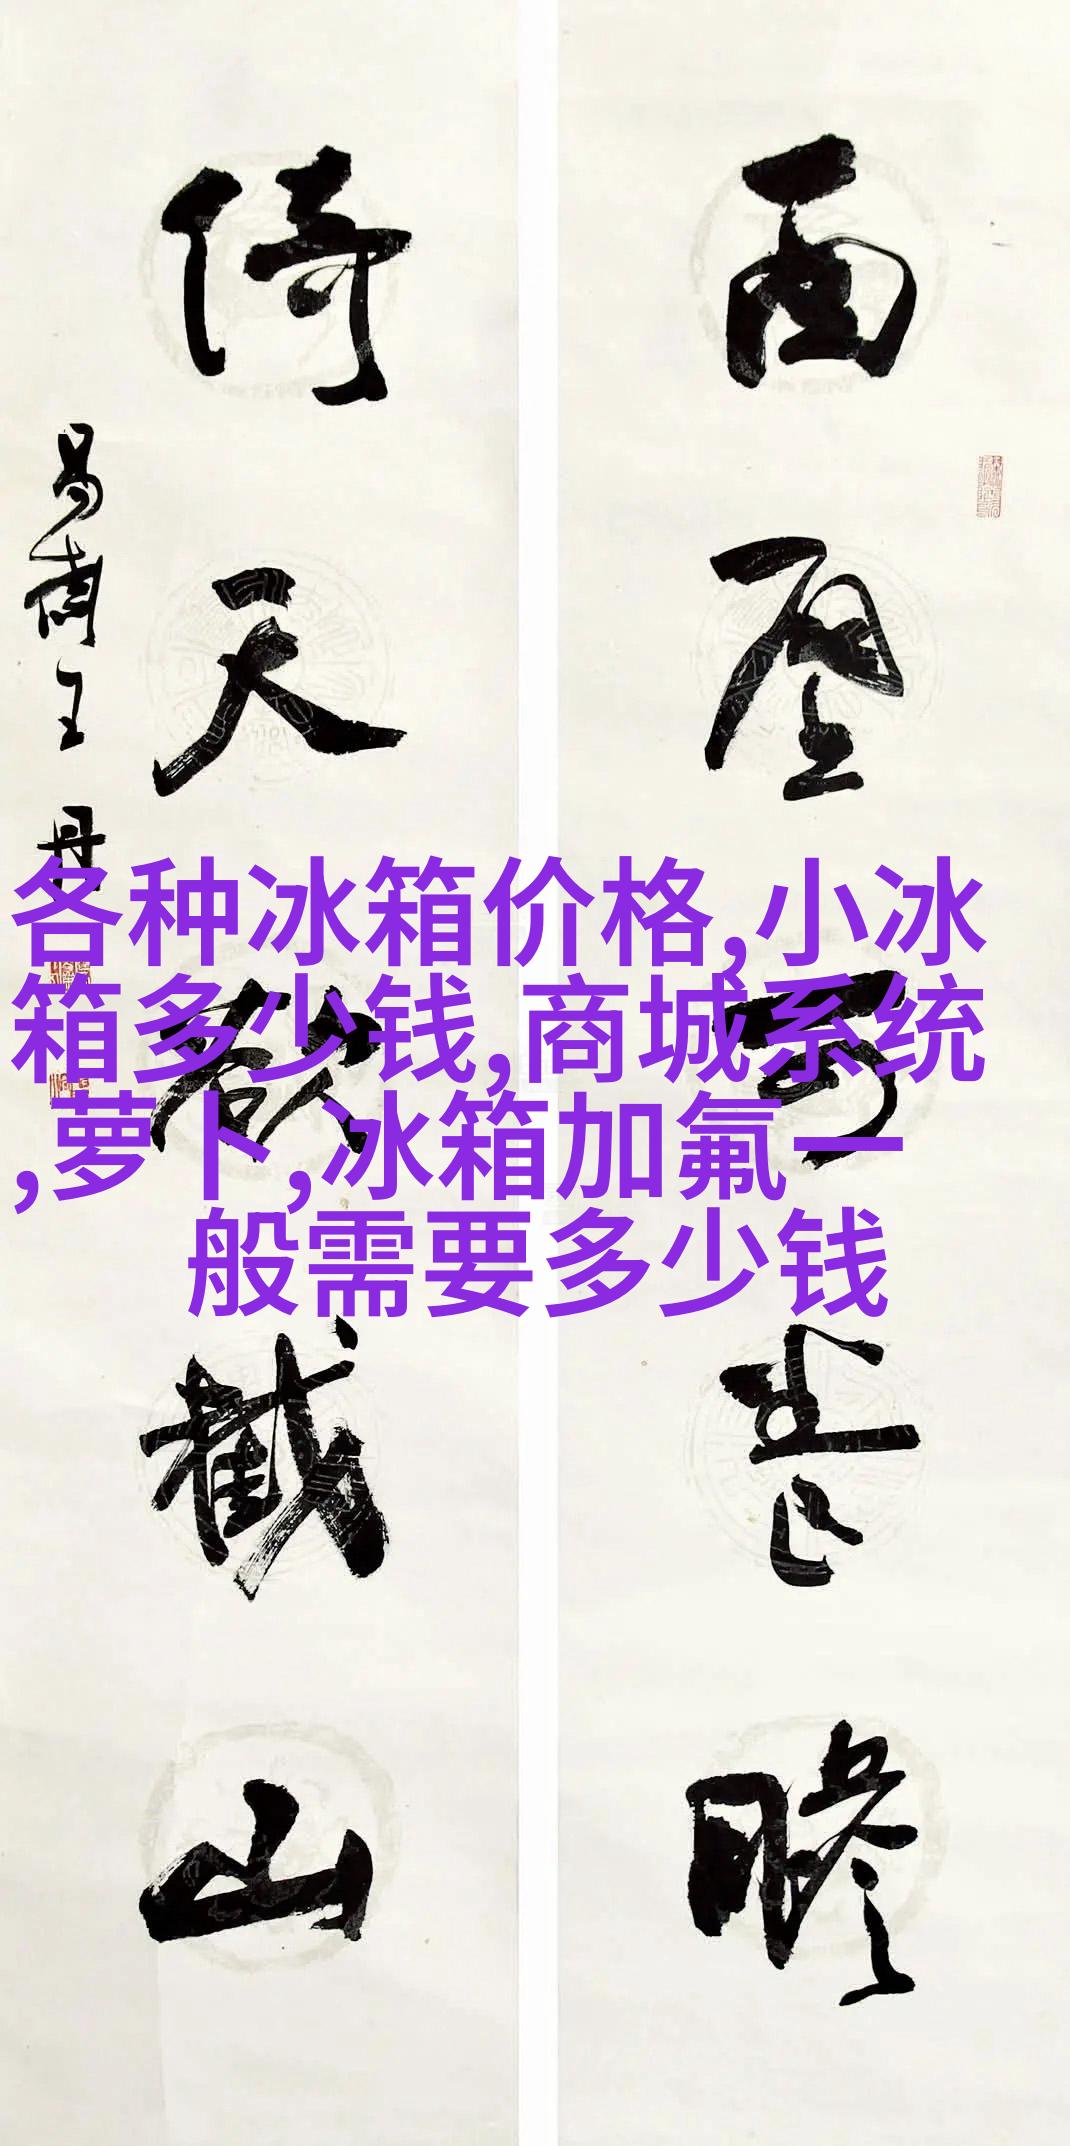 面
壁
可
瞻
倚
天
欲
截
山
各种冰箱价格,小冰
箱多少钱,商城系统
,萝卜,冰箱加氟一
般需要多少钱